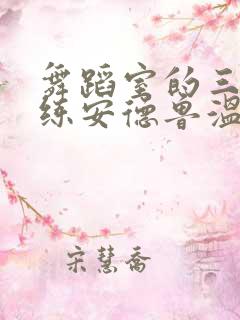 舞蹈室的三
练安德鲁溫
宋慧喬